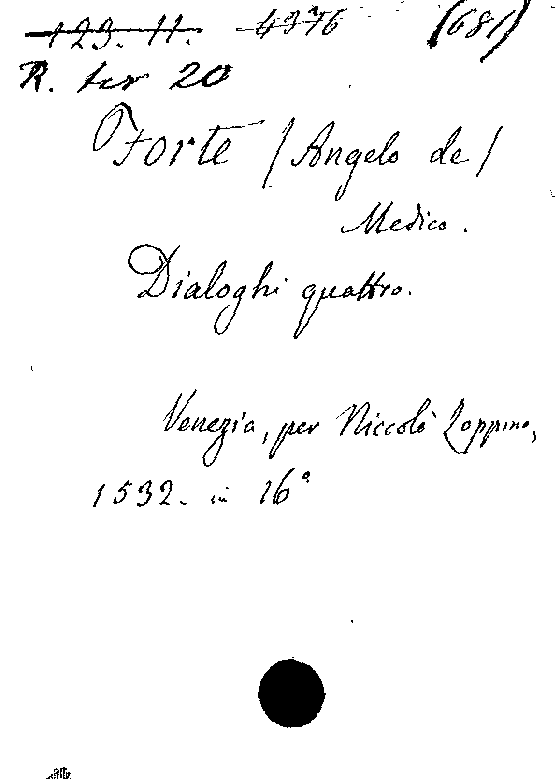 123. 11. 4376 (681)
R. ter 20
Forte / Angelo de /
Medico.
Dialoghi quattro.
Venezia, per Niccolò Zoppino,
1532. in 16°